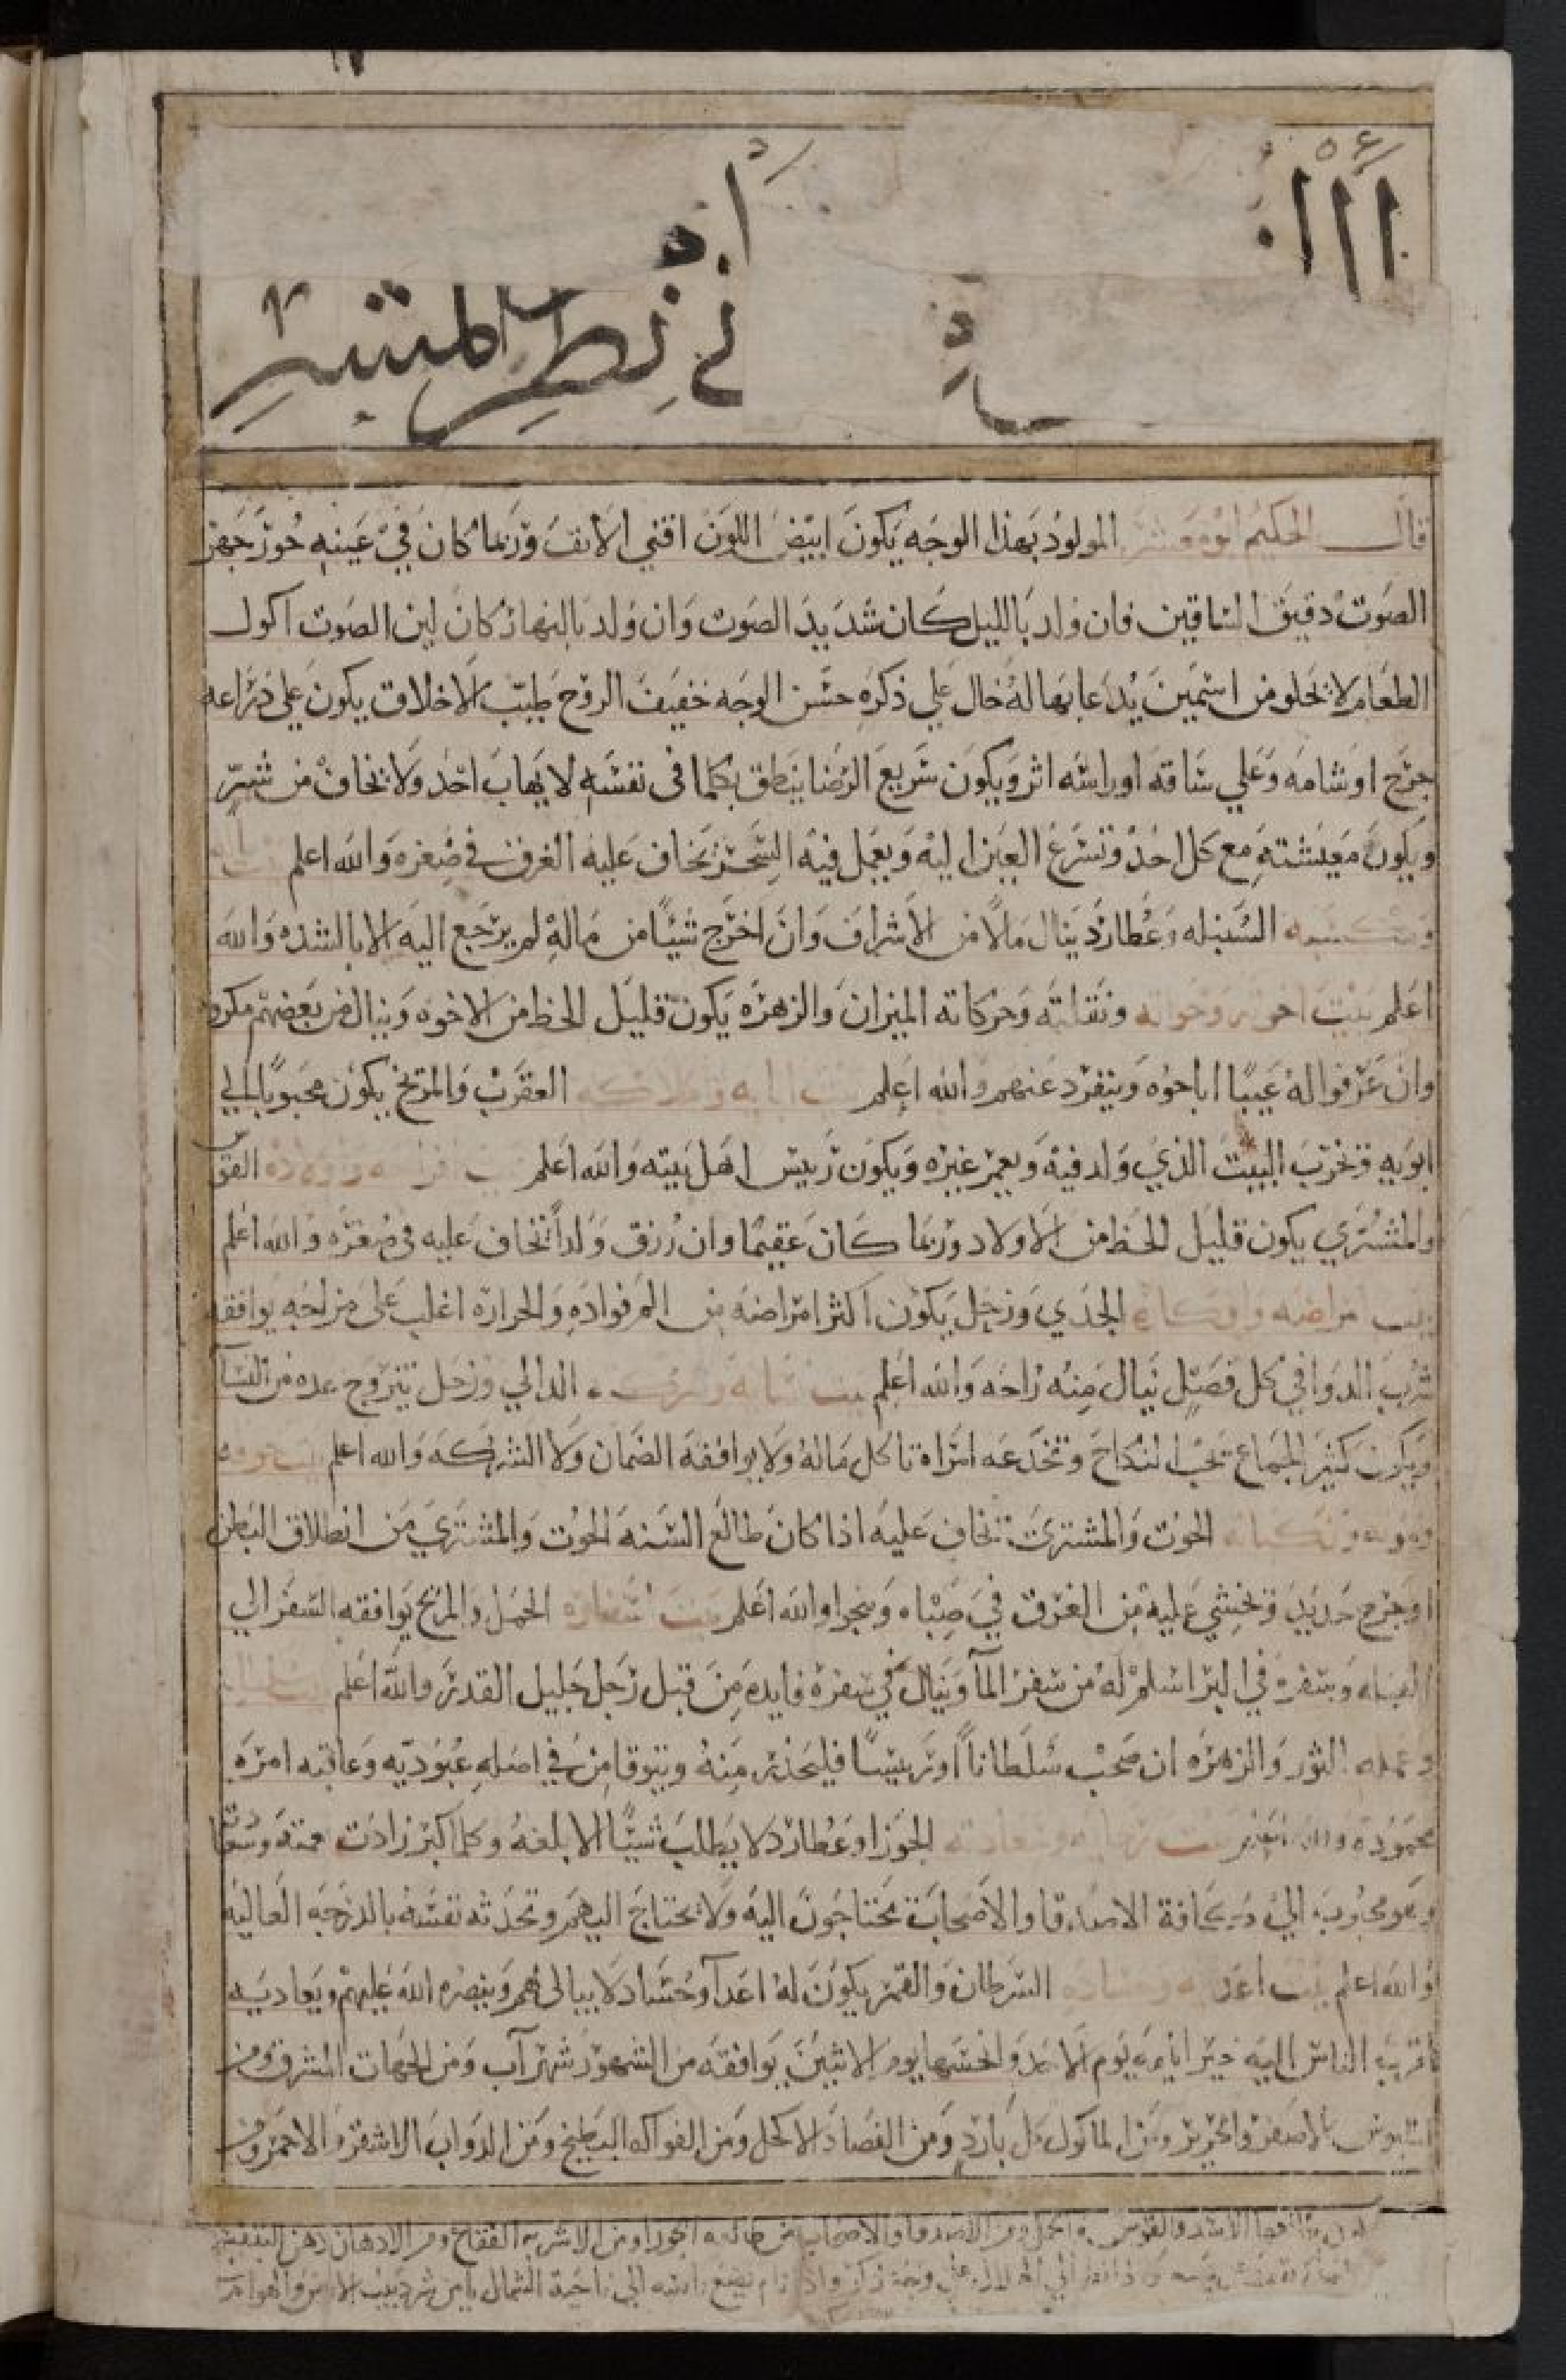 في نظر المشتري
قال الحكيم ابو معشر المولود بهذا الوجه يكون ابيض اللون اقنى الانف وربما كان في عينه حوز جهر
الصوت دقيق الساقين فان ولد بالليل كان شديد الصوت وان ولد بالنهار كان لين الصوت اكول
الطعام لا يخلو من اسمين يدعا بهما له خال على ذكره حسن الوجه خفيف الروح طيب الاخلاق يكون على ذراعه
جرح او شامه وعلى ساقه او راسه اثر ويكون سريع الرضا ينطق بكلما في نفسه لا يهاب احد ولا يخاف من
ويكون معيشته مع كل احد وتسرع العين اليه ويعمل فيه السحر يخاف عليه الغرق في صغره والله اعلم بيت
السنبله وعطارد ينال مالا من الاشراف وان اخرج شيئا من ماله لم يرجع اليه الا بالشده والله
اعلم بيت اخوته ونقلته وحركاته الميزان والزهره يكون قليل الحظ من الاخوه وينال من بعضهم مكروه
وان عرفوا له عيبا اباحوه وينفرد عنهم والله اعلم بيت العقرب والمريخ يكون محبوبا الى
ابويه ويخرب البيت الذي ولد فيه ويعمر غيره ويكون رييس اهل بيته والله اعلم القوس
والمشتري يكون قليل الحظ من الاولاد وربما كان عقيما وان رزق ولدا يخاف عليه في صغره والله اعلم
بيت امراضه الجدي وزحل يكون اكثر امراضه من الم فواده والحراره اغلب على مزاجه يوافقه
شرب الدوا في كل فصل ينال منه راحه والله اعلم بيت الدالي وزحل يتزوج عده من النسا
ويكون كثير الجماع يحب النكاح وتخدعه امراة تاكل ماله ولا يوافقه الضمان ولا الشركه والله اعلم بيت خوفه
الحوت والمشتري يخاف عليه اذا كان طالع السنه الحوت والمشتري من انطلاق البطن
او جرح حديد ويخشي عليه من الغرق في صباه وينجوا والله اعلم بيت اسفاره الحمل والمريخ يوافقه السفر الي
القبله وسفره في البر اسلم له من سفر المآ وينال في سفره فايده من قبل رجل جليل القدر والله اعلم بيت
وعمله الثور والزهره ان صحب سلطانا او رييسا فليحذر منه ويتوقا من في اصله عبوديه وعاقبه امره
محموده والله اعلم بيت الجوزا وعطارد لا يطلب شيئا الا بلغه وكلما كبر زادت
وهو محبوب الي كافة الاصدقا والاصحاب يحتاجون اليه ولا يحتاج اليهم وتحدثه نفسه بالدرجه العاليه
والله اعلم بيت السرطان والقمر يكون له اعدآ وحساد لا يبالى بهم وينصره الله عليهم ويعاديه
اقرب الناس اليه خير ايامه يوم الاحد وانحسها يوم الاثنين يوافقه من الشهور شهر آب ومن الجهات المشرق ومن
الملبوس الاصفر والحرير ومن الماكول كل بارد ومن الفصاد الاكحل ومن الفواكه البطيخ ومن الدواب الاشقر والاحمر ومن
الاسد والقوس والحمل ومن الاصدقا والاصحاب من طالعه الجوزا ومن الاشربه الفقاع ومن الادهان دهن البنفسج
الي ناحية الشمال